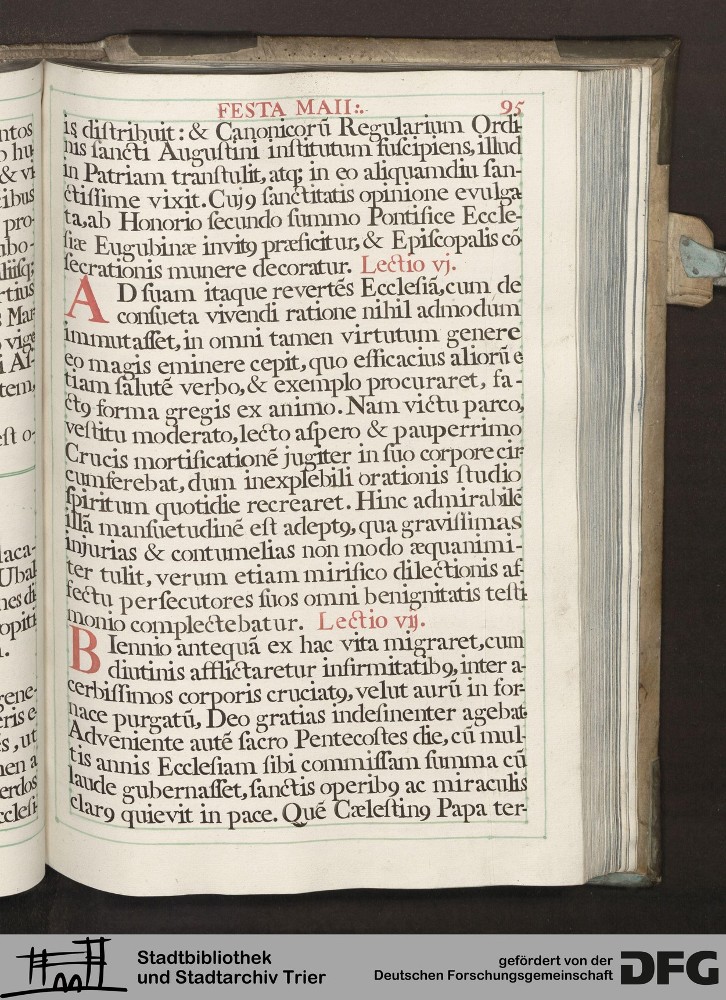 FESTA MAII:. 95
is diſtribuit : & Canonicorũ Regularium Ordi-
nis ſancti Auguſtini inſtitutum ſuſcipiens, illud
in Patriam tranſtulit, atq; in eo aliquamdiu ſan-
ctiſſime vixit. Cujꝰ ſanctitatis opinione evulga-
ta, ab Honorio ſecundo ſummo Pontifice Eccle-
ſiæ Eugubinæ invitꝰ præficitur, & Epiſcopalis cõ
ſecrationis munere decoratur. Lectio vj.
AD ſuam itaque revertẽs Eccleſiã, cum de
conſueta vivendi ratione nihil admodum
immutaſſet, in omni tamen virtutum genere
eo magis eminere cepit, quo efficacius aliorũ e
tiam ſalutẽ verbo, & exemplo procuraret, fa-
ctꝰ forma gregis ex animo. Nam victu parco,
veſtitu moderato, lecto aſpero & pauperrimo
Crucis mortificationẽ jugiter in ſuo corpore cir
cumferebat, dum inexplebili orationis ſtudio
ſpiritum quotidie recrearet. Hinc admirabilẽ
illã manſuetudinẽ eſt adeptꝰ, qua graviſſimas
injurias & contumelias non modo æquanimi-
ter tulit, verum etiam mirifico dilectionis af-
fectu perſecutores ſuos omni benignitatis teſti
monio complectebatur. Lectio vij.
BIennio antequã ex hac vita migraret, cum
diutinis afflictaretur infirmitatibꝰ, inter a-
cerbiſſimos corporis cruciatꝰ, velut aurũ in for-
nace purgatũ, Deo gratias indeſinenter agebat.
Adveniente autẽ ſacro Pentecoſtes die, cũ mul-
tis annis Eccleſiam ſibi commiſſam ſumma cũ
laude gubernaſſet, ſanctis operibꝰ ac miraculis
clarꝰ quievit in pace. Quẽ Cæleſtinꝰ Papa ter-
ntos
& vi
cibus
pro-
mbo-
rtius
vige
tem,
eſt o-
laca-
Ubal
nes di
opiti
gene-
eris e-
s, ut
men a
erdos
ccleſi
Stadtbibliothek
und Stadtarchiv Trier
gefördert von der
Deutschen Forschungsgemeinschaft
DFG